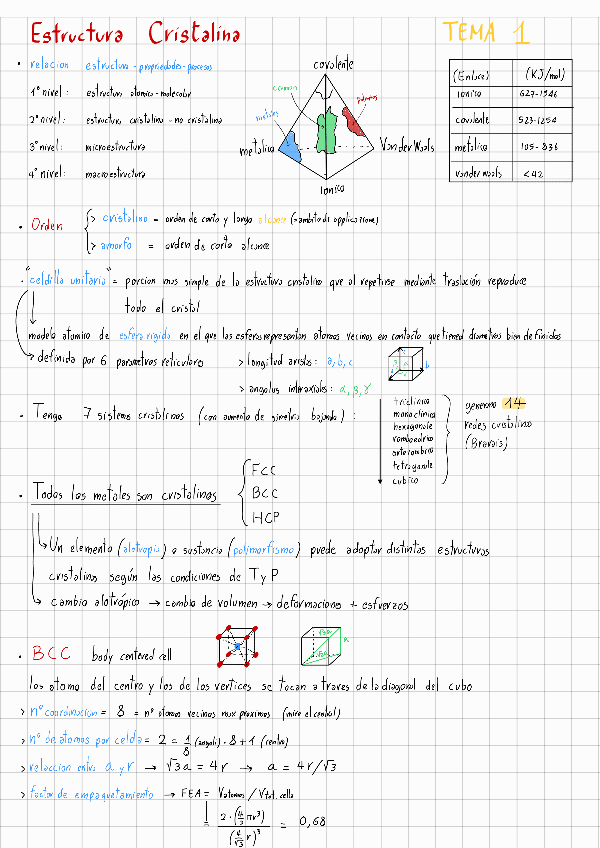 Estructura Cristalina
TEMA 1
• relacion estructura - propriedades - procesos
1° nivel: estructura atomico - molecolar
2° nivel: estructura cristalina - no cristalina
3° nivel: microestructura
4° nivel: macroestructura
covalente
metalico
Van der Waals
Ionico
(Enlace) (KJ/mol)
Ionico 627-1546
covalente 523-1254
metalico 105-836
vander waals <42
• Orden
> cristalino = orden de corto y largo alcano (= ambito de applicazione)
> amorfo = orden de corto alcance
• "celdilla unitaria" = porcion mas simple de la estructura cristalina que al repetirse mediante traslación reproduce
todo el cristal
modelo atomico de esfera rigida en el que las esferas representan atomos vecinos en contacto que tiened diametros bien definidos
definida por 6 parametros reticulares
> longitud aristas: a, b, c
> angulos interaxiales: α, β, γ
• Tengo 7 sistemas cristalinos (con aumento de simetria bajando):
triclinico
monoclinico
hexagonale
romboedrico
ortorombico
tetragonale
cubico
generano 14
redes cristalina
(Bravais)
• Todos los metales son cristalinas
FCC
BCC
HCP
Un elemento (alotropia) o sustancia (polimorfismo) puede adoptar distintas estructuras
cristalinas según las condiciones de T y P
cambio alotrópico → cambio de volumen → deformaciones + esfuerzos
• BCC body centered cell
los atomo del centro y los de los vertices se tocan a traves de la diagonal del cubo
> n° coordinacion = 8 = n° atomos vecinos mas proximos (miro el central)
> n° de atomos por celda = 2 = 1/8 (angoli) · 8 + 1 (centro)
> relaccion entre a y r → √3 a = 4r → a = 4r/√3
> factor de empaquetamiento → FEA = Vatomos / Vtot. cella
= 2·(4/3 πr³) / (4/√3 r)³ = 0,68